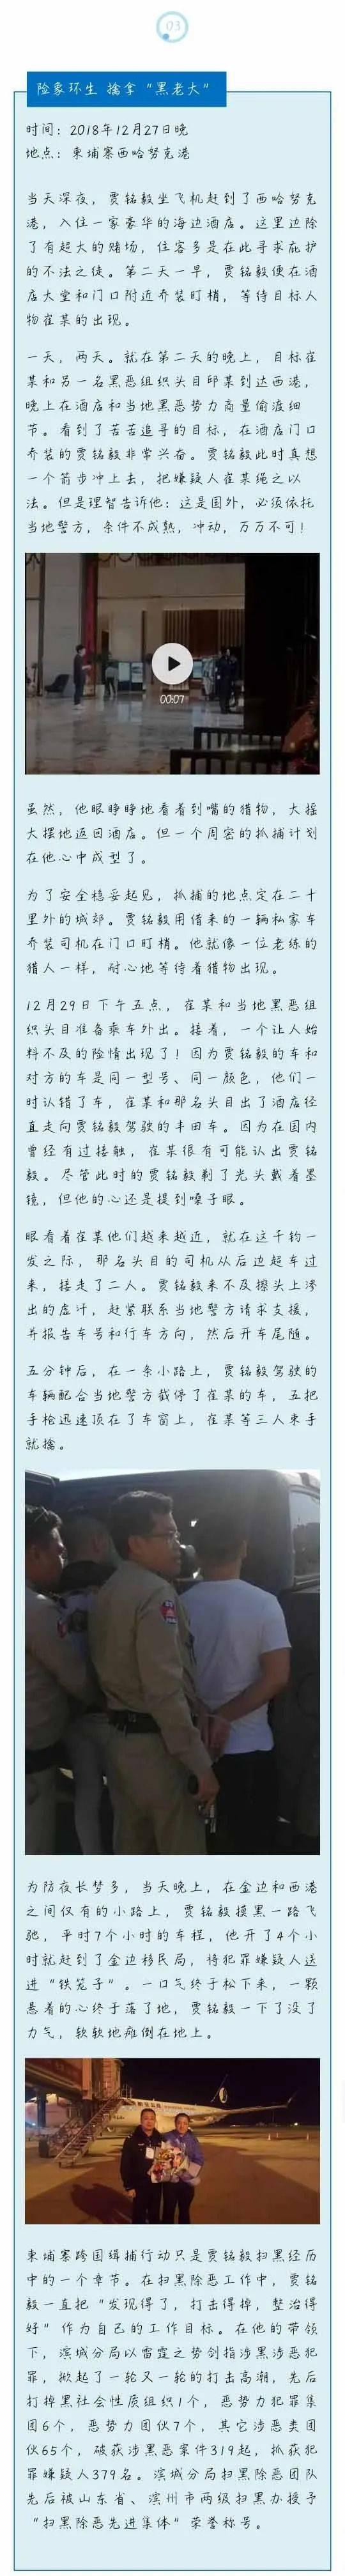 03
险象环生 擒拿“黑老大”
时间：2018年12月27日晚
地点：柬埔寨西哈努克港
当天深夜，贾铭毅坐飞机赶到了西哈努克
港，入住一家豪华的海边酒店。这里边除
了有超大的赌场，住客多是在此寻求庇护
的不法之徒。第二天一早，贾铭毅便在酒
店大堂和门口附近乔装盯梢，等待目标人
物崔某的出现。
一天，两天。就在第二天的晚上，目标崔
某和另一名黑恶组织头目邱某到达西港，
晚上在酒店和当地黑恶势力商量偷渡细
节。看到了苦苦追寻的目标，在酒店门口
乔装的贾铭毅非常兴奋。贾铭毅此时真想
一个箭步冲上去，把嫌疑人崔某绳之以
法。但是理智告诉他：这是国外，必须依托
当地警方，条件不成熟，冲动，万万不可！
00:07
虽然，他眼睁睁地看着到嘴的猎物，大摇
大摆地返回酒店。但一个周密的抓捕计划
在他心中成型了。
为了安全稳妥起见，抓捕的地点定在二十
里外的城郊。贾铭毅用借来的一辆私家车
乔装司机在门口盯梢。他就像一位老练的
猎人一样，耐心地等待着猎物出现。
12月29日下午五点，崔某和当地黑恶组
织头目准备乘车外出。接着，一个让人始
料不及的险情出现了！因为贾铭毅的车和
对方的车是同一型号、同一颜色，他们一
时认错了车，崔某和那名头目出了酒店径
直走向贾铭毅驾驶的丰田车。因为在国内
曾经有过接触，崔某很有可能认出贾铭
毅。尽管此时的贾铭毅剃了光头戴着墨
镜，但他的心还是提到嗓子眼。
眼看着崔某他们越来越近，就在这千钧一
发之际，那名头目的司机从后边超车过
来，接走了二人。贾铭毅来不及擦头上渗
出的虚汗，赶紧联系当地警方请求支援，
并报告车号和行车方向，然后开车尾随。
五分钟后，在一条小路上，贾铭毅驾驶的
车辆配合当地警方截停了崔某的车，五把
手枪迅速顶在了车窗上，崔某等三人束手
就擒。
为防夜长梦多，当天晚上，在金边和西港
之间仅有的小路上，贾铭毅摸黑一路飞
驰，平时7个小时的车程，他开了4个小
时就赶到了金边移民局，将犯罪嫌疑人送
进“铁笼子”。一口气终于松下来，一颗
悬着的心终于落了地，贾铭毅一下了没了
力气，软软地瘫倒在地上。
柬埔寨跨国缉捕行动只是贾铭毅扫黑经历
中的一个章节。在扫黑除恶工作中，贾铭
毅一直把“发现得了，打击得掉，整治得
好”作为自己的工作目标。在他的带领
下，滨城分局以雷霆之势剑指涉黑涉恶犯
罪，掀起了一轮又一轮的打击高潮，先后
打掉黑社会性质组织1个，恶势力犯罪集
团6个，恶势力团伙7个，其它涉恶类团
伙65个，破获涉黑恶案件319起，抓获犯
罪嫌疑人379名。滨城分局扫黑除恶团队
先后被山东省、滨州市两级扫黑办授予
“扫黑除恶先进集体”荣誉称号。